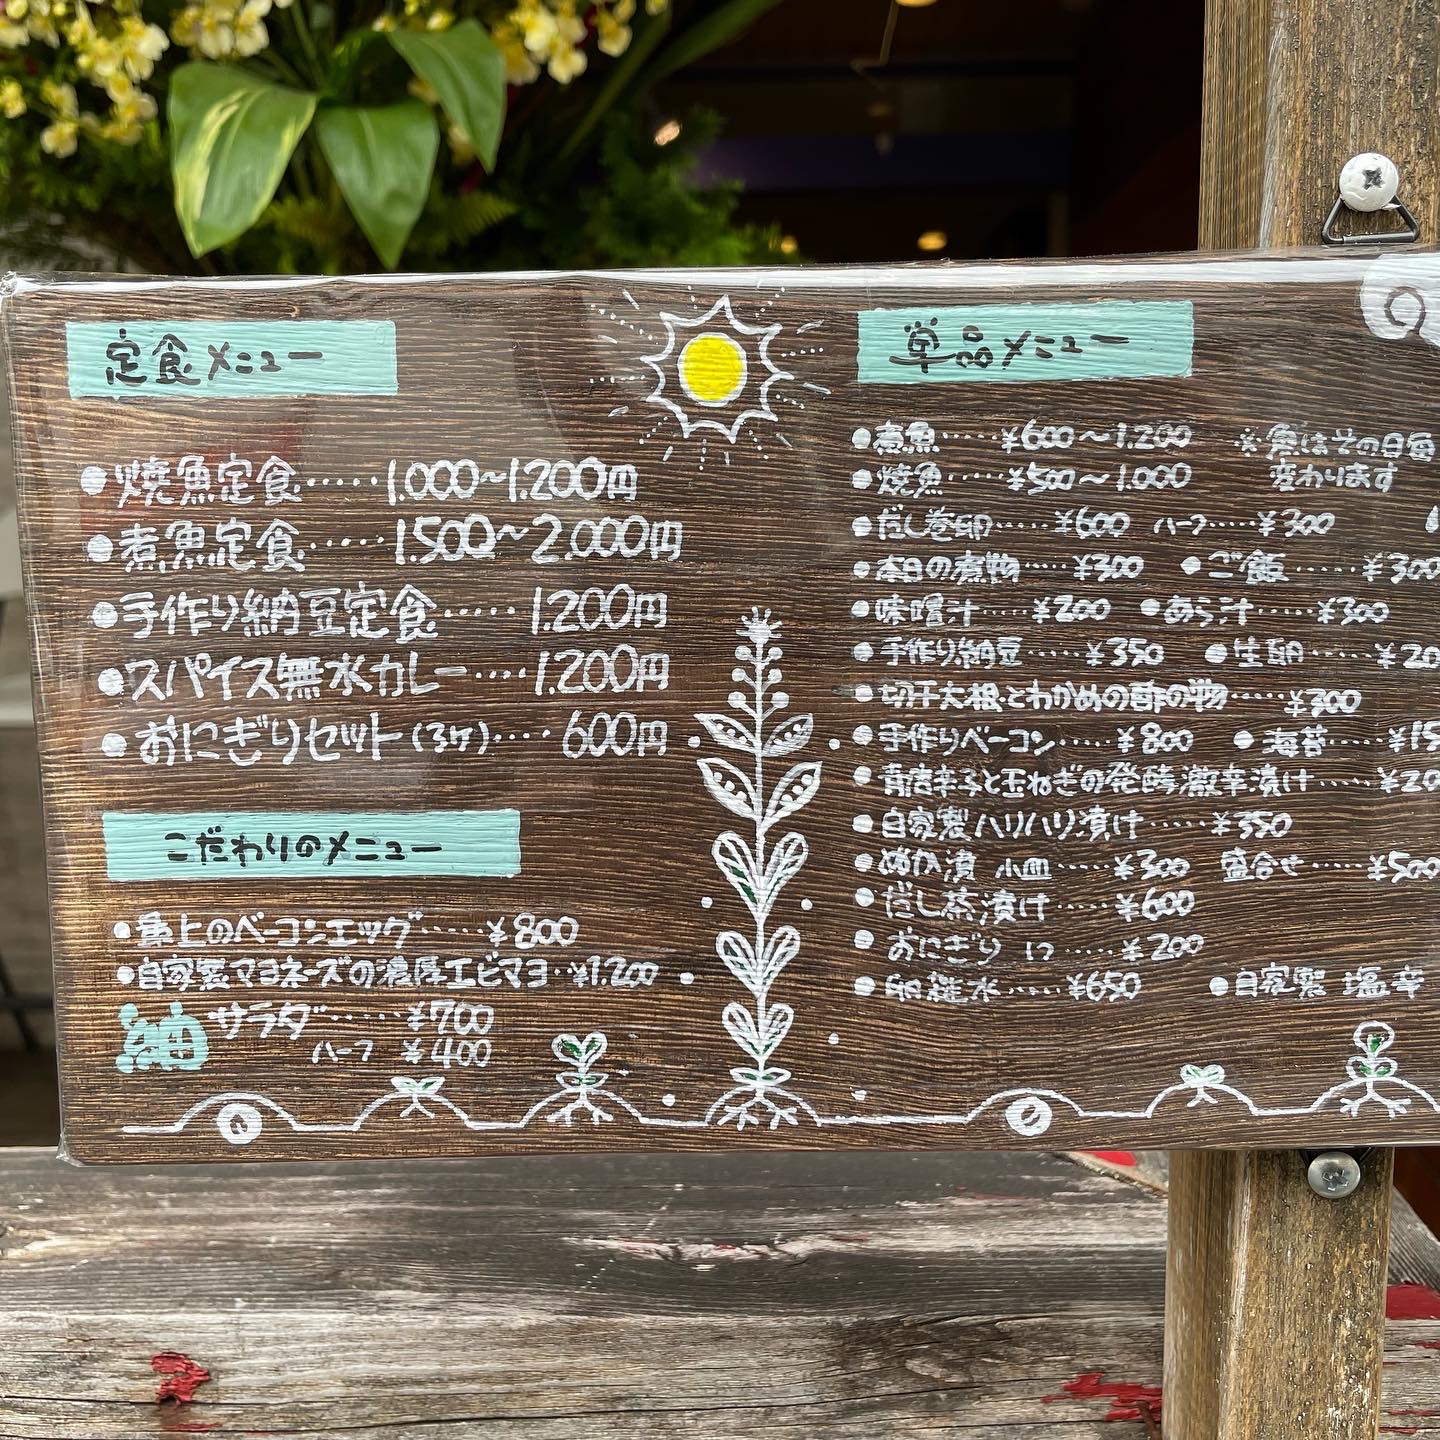 定食メニュー
●焼魚定食‥‥‥1.000〜1.200円
●煮魚定食‥‥‥1.500〜2.000円
●手作り納豆定食‥‥‥1.200円
●スパイス無水カレー‥‥1.200円
●おにぎりセット(3ケ)‥‥600円
こだわりのメニュー
●最上のベーコンエッグ‥‥‥¥800
●自家製マヨネーズの濃厚エビマヨ‥¥1.200
畑サラダ‥‥‥¥700
ハーフ ¥400
単品メニュー
●煮魚‥‥¥600〜1.200 ※魚はその日毎
●焼魚‥‥¥500〜1.000 変わります
●だし巻卵‥‥¥600 ハーフ‥‥¥300
●本日の煮物‥‥¥300 ●ご飯‥‥¥300
●味噌汁‥‥¥200 ●あら汁‥‥¥300
●手作り納豆‥‥¥350 ●生卵‥‥¥20
●切干大根とわかめの酢の物‥‥¥300
●手作りベーコン‥‥¥800 ●海苔‥‥¥15
●青唐辛子と玉ねぎの発酵激辛漬け‥‥¥20
●自家製ハリハリ漬け‥‥¥350
●ぬか漬 小皿‥‥¥300 盛合せ‥‥¥500
●だし茶漬け‥‥¥600
●おにぎり 1ケ‥‥¥200
●卵雑水‥‥¥650 ●自家製 塩辛